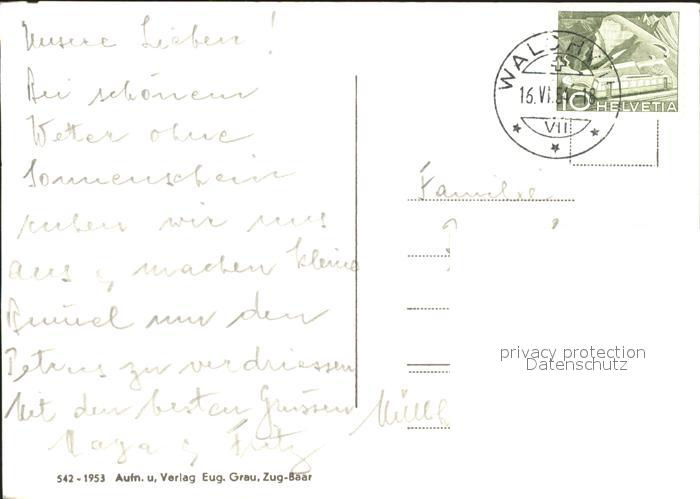 Unsere Lieben!
Bei schönem
Wetter ohne
Sonnenschein
ruhen wir uns
aus & machen kleine
um den
Petrus zu verdriessen
Mit den besten Grüssen
& Fritz
542-1953 Aufn. u, Verlag Eug. Grau, Zug-Baar
WALDH
16.VI.54-18
VII
10 HELVETIA
Familie
privacy protection
Datenschutz